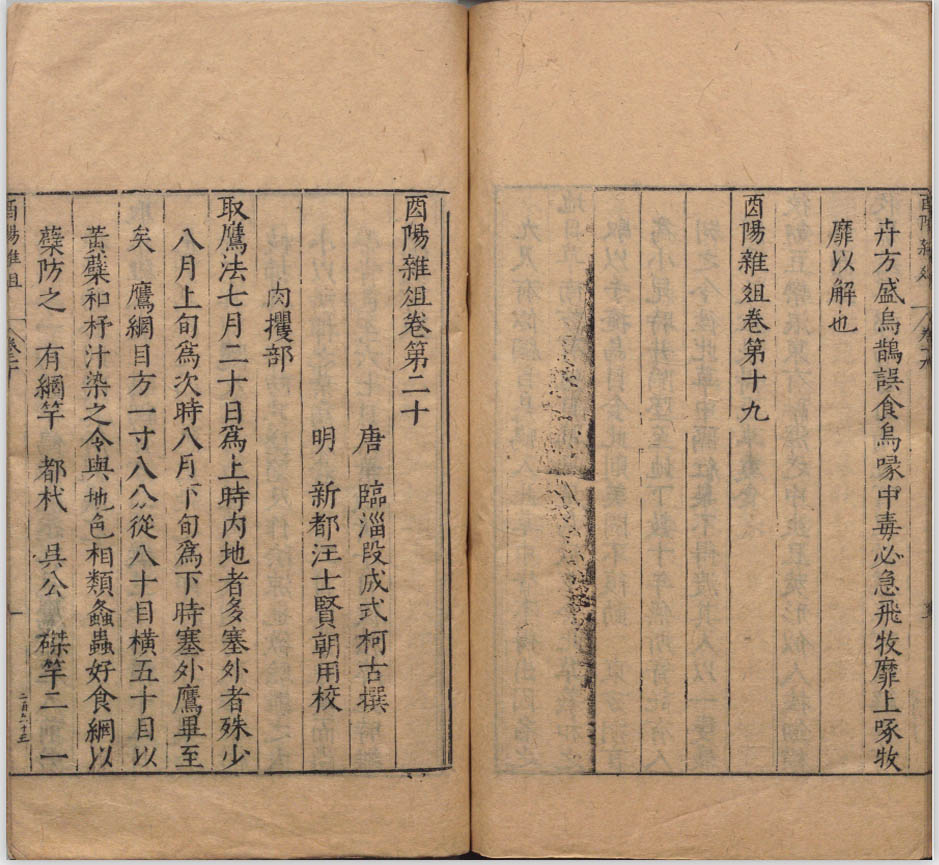 卉方盛烏鵲誤食烏喙中毒必急飛牧靡上啄牧
靡以解也
酉陽雜俎卷第十九
酉陽雜俎卷第二十
唐 臨淄段成式柯古撰
明 新都汪士賢朝用校
肉攫部
取鷹法七月二十日爲上時內地者多塞外者殊少
八月上旬爲次時八月下旬爲下時塞外鷹畢至
矣 鷹網目方一寸八分從八十目橫五十目以
黃蘗和杼汁染之令與地色相類螽蟲好食網以
蘗防之 有網竿 都杙 吳公 磔竿二 一
酉陽雜俎
卷二十
一